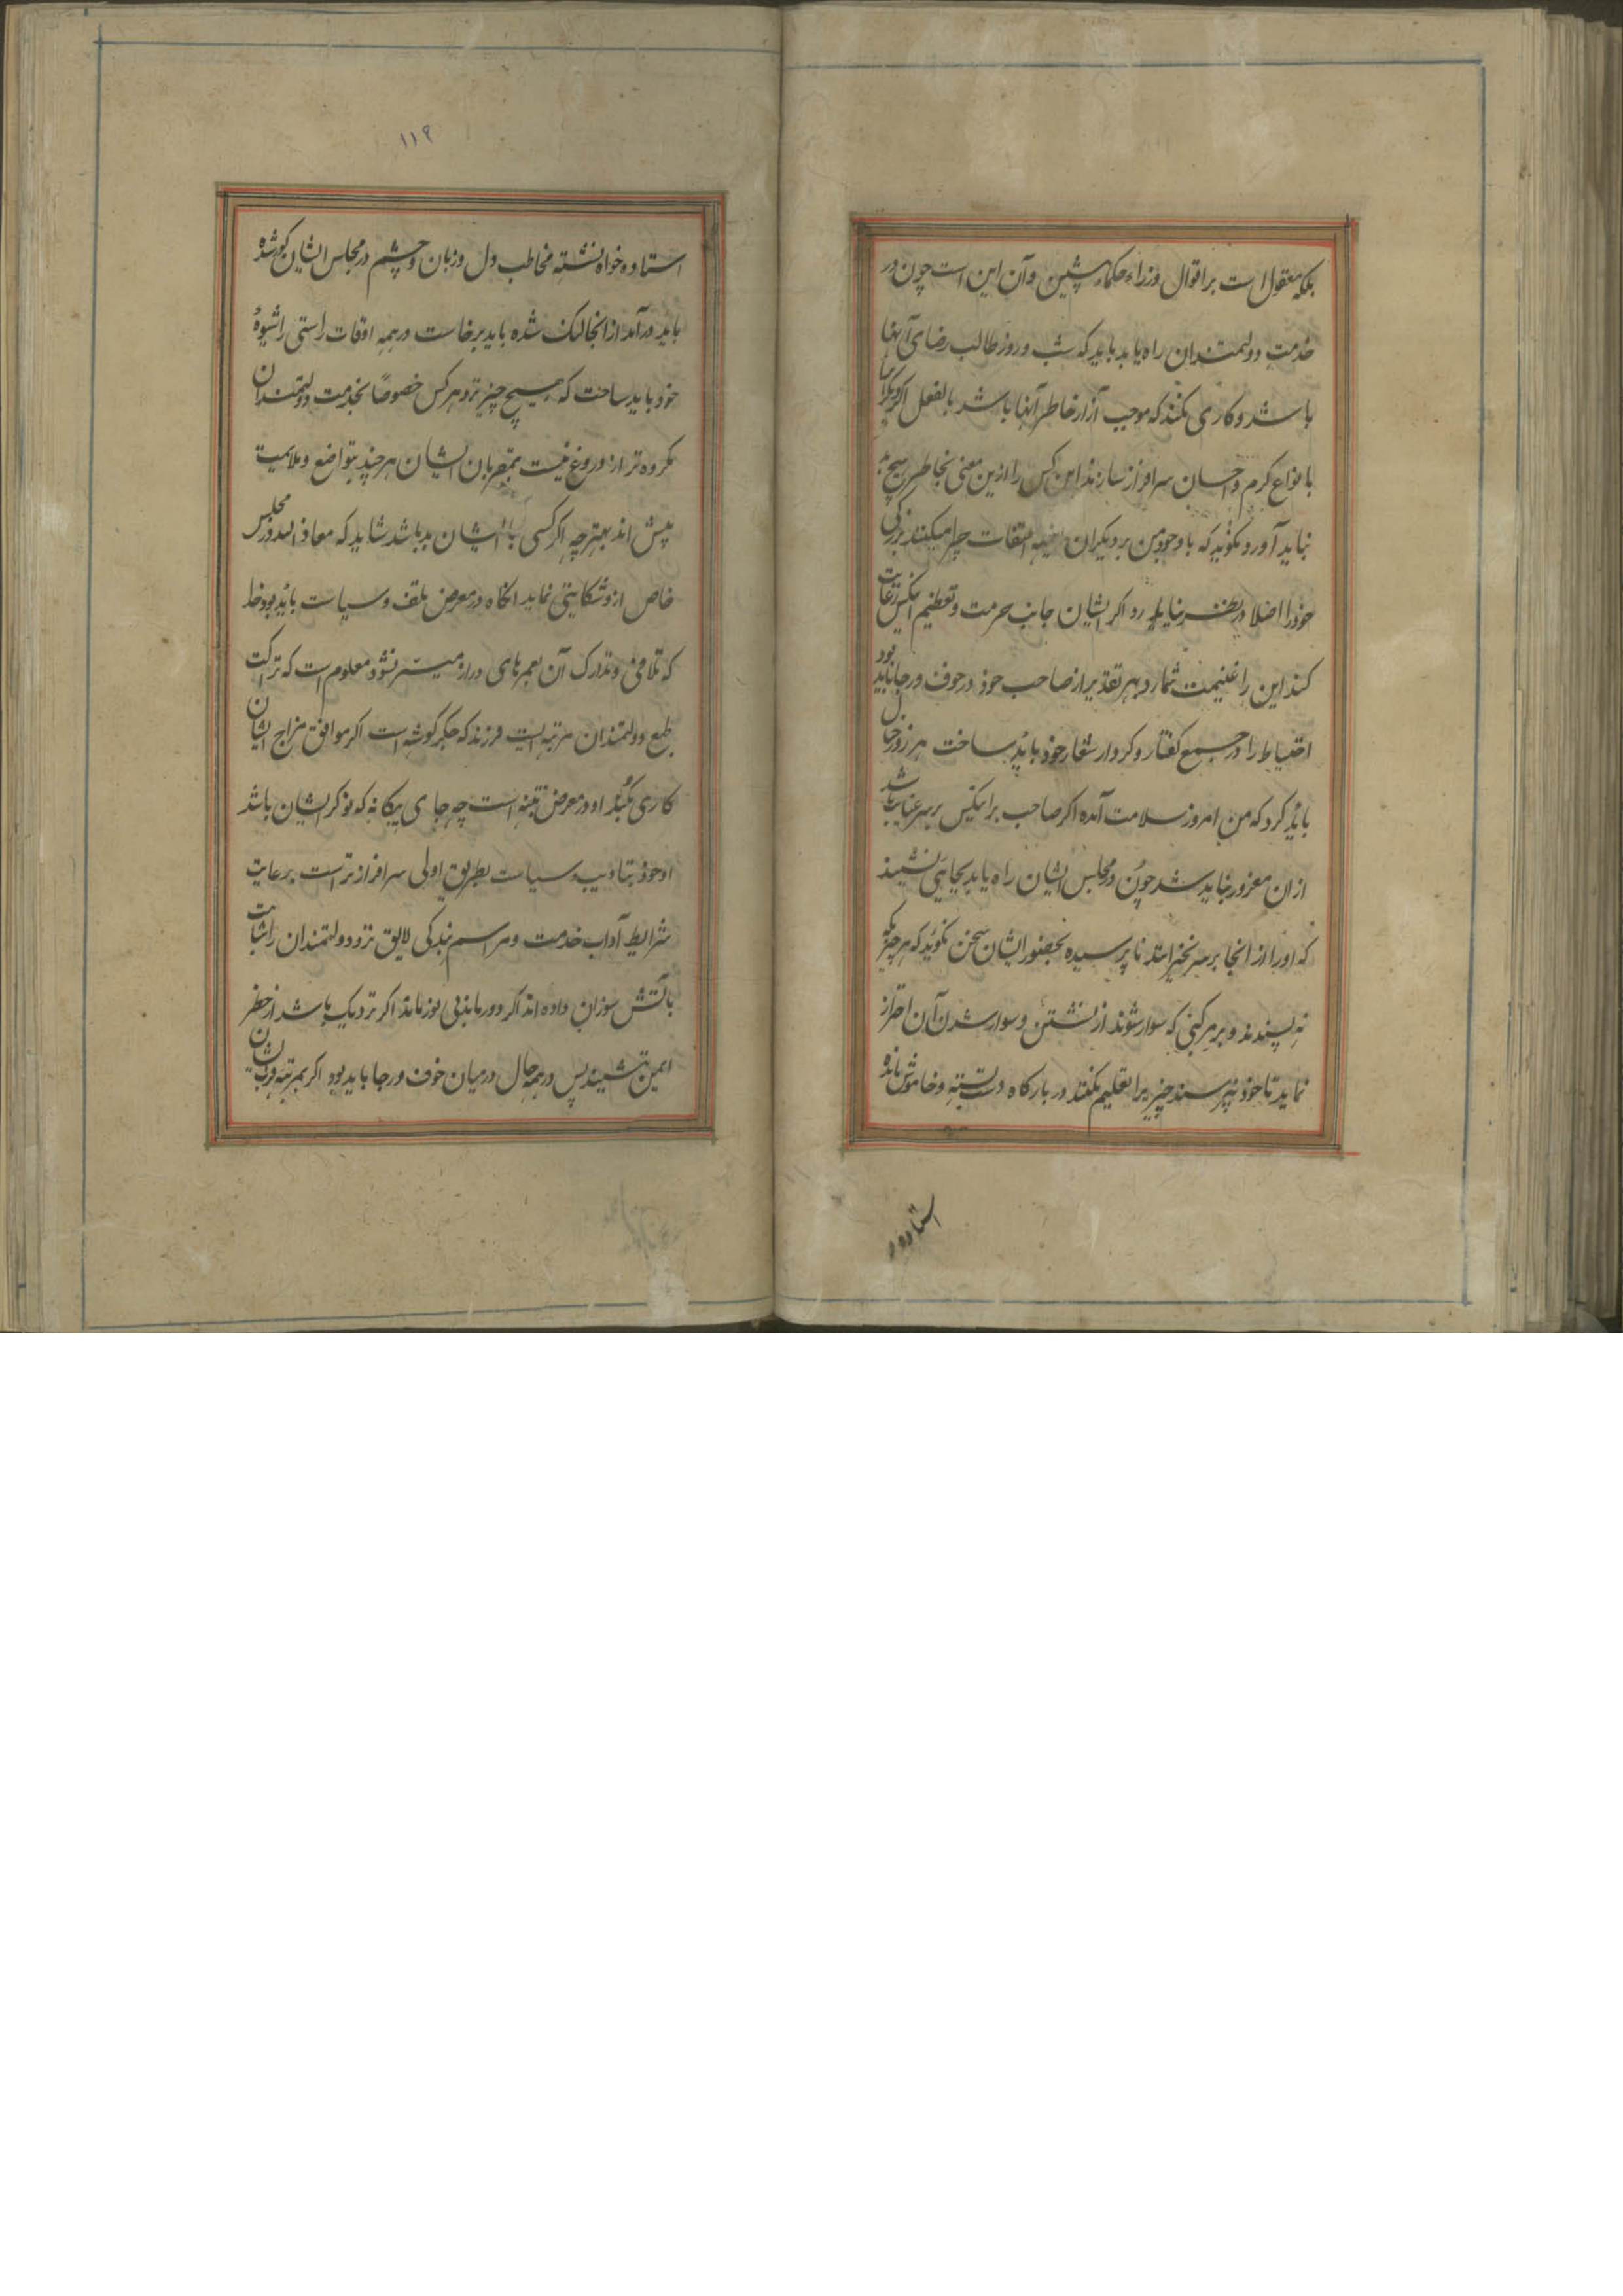 بلکه معقول است بر اقوال وزراء حکماء پیشین و آن این است چون در
خدمت دولتمندان راه یابد باید که شب و روز طالب رضای آنها
باشد و کاری نکند که موجب آزار خاطر آنها باشد بالفعل اگر دیگر را
بانواع کرم و احسان سرافراز سازند این کس را ازین معنی بخاطر هیچ
نباید آورد و نکوید که با وجود من بر دیگران التفات چرا میکنند بزرکی
خود را اصلا در نظر نباید اگر ایشان جانب حرمت و تعظیم اینکس رعایت
کنند این را غنیمت شمارد بهر تقدیر از صاحب خود در خوف و رجا باید بود
احتیاط را در جمیع گفتار و کردار شعار خود باید ساخت هر روز خیال
باید کرد که من امروز سلامت آمده اگر صاحب بر اینکس بر سر عنایت باشد
ازان مغرور نباید شد چون در مجلس ایشان راه یابد بجایی نشیند
که او را از انجا بر نخیزانند نا پرسیده بحضور ایشان سخن نکوید که هر چیزیکه
نه پسندند و بر مرکبی که سوار شوند از نشستن و سوار شدن آن احتراز
نماید تا خود نپرسند چیزیرا تعلیم نکند در بارگاه دست بسته و خاموش مانده
استاده
۱۱۹
استاده خواه نشسته مخاطب دل و زبان و چشم در مجلس ایشان کور شده
باید درآمد از انجا لنک شده باید برخاست در همه اوقات راستی را شیوهٔ
خود باید ساخت که هیچ چیز نزد هر کس خصوصاً بخدمت دولتمندان
مکروه تر از دروغ نیست بمقربان ایشان هر چند بتواضع و ملایمیت
پیش اند بهتر چه اگر کسی با ایشان بد باشد شاید که معاذ الله در مجلس
خاص ازو شکایتی نماید انگاه در معرض تلف و سیاست باید بود
که تلافی و تدارک آن بعمرهای دراز میسر نشود معلوم است که نزاکت
طبع دولتمندان مرتبه ایست فرزند که جگر گوشه است اگر موافق مزاج ایشان
کاری نکند او در معرض تنبیه است چه جای بیگانه که نوکر ایشان باشد
او خود بتادیب و سیاست بطریق اولی سرافراز تر است برعایت
شرایط آداب خدمت و مراسم بندگی لایق نزد دولتمندان را شباهت
بآتش سوزان داده اند اگر دور ماند بی نور ماند اگر نزدیک باشد از خطر
ایمن نشیند پس در همه حال در میان خوف و رجا باید بود اگر بمرتبه قرب ایشان